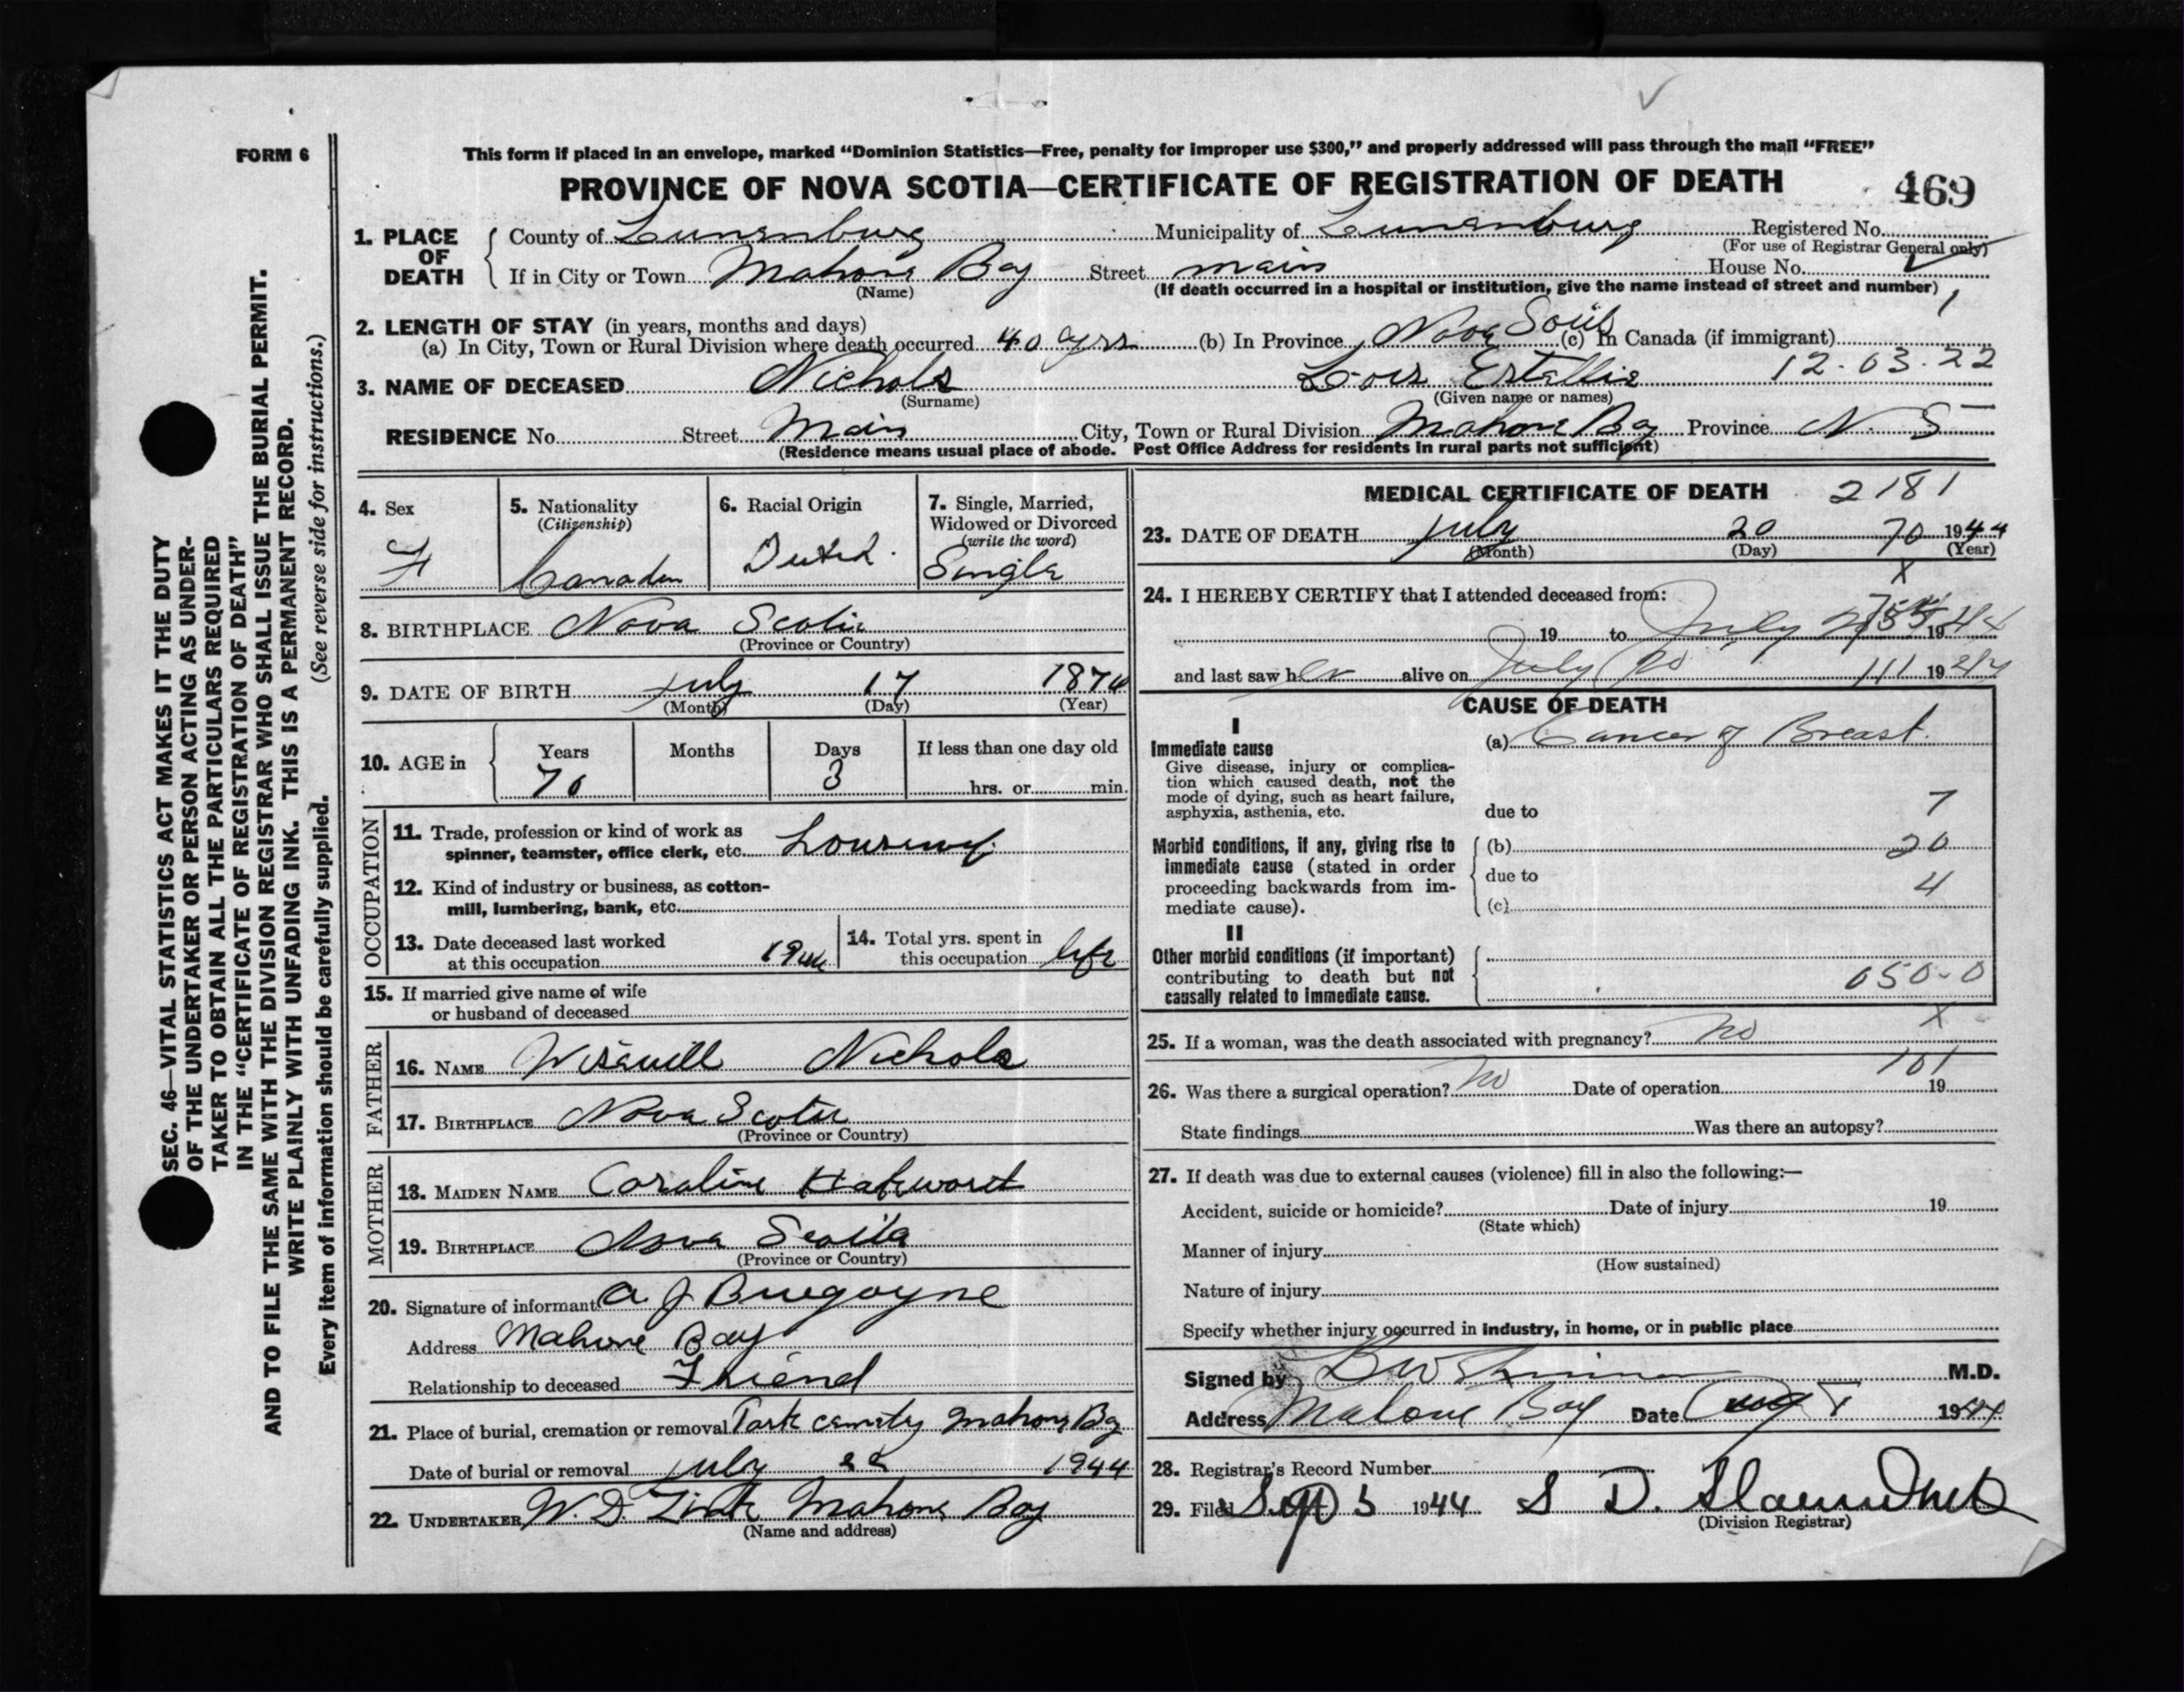 FORM 6
This form if placed in an envelope, marked "Dominion Statistics—Free, penalty for improper use $300," and properly addressed will pass through the mail "FREE"
PROVINCE OF NOVA SCOTIA—CERTIFICATE OF REGISTRATION OF DEATH 469
1. PLACE OF DEATH { County of Lunenburg Municipality of Lunenburg Registered No.
(For use of Registrar General only)
If in City or Town Mahone Bay Street main House No.
(Name) (If death occurred in a hospital or institution, give the name instead of street and number) 1
2. LENGTH OF STAY (in years, months and days)
(a) In City, Town or Rural Division where death occurred 40 yrs (b) In Province Nova (c) In Canada (if immigrant)
3. NAME OF DECEASED Nichols Lois 12-03-22
(Surname) (Given name or names)
RESIDENCE No. Street Main City, Town or Rural Division Mahone Bay Province N. S
(Residence means usual place of abode. Post Office Address for residents in rural parts not sufficient)
4. Sex F
5. Nationality
(Citizenship)
6. Racial Origin
7. Single, Married, Widowed or Divorced
(write the word)
Single
8. BIRTHPLACE Nova Scotia
(Province or Country)
9. DATE OF BIRTH July 17 1874
(Month) (Day) (Year)
10. AGE in { Years Months Days If less than one day old
70 3 hrs. or min.
OCCUPATION
11. Trade, profession or kind of work as
spinner, teamster, office clerk, etc.
12. Kind of industry or business, as cotton-
mill, lumbering, bank, etc.
13. Date deceased last worked
at this occupation 1944
14. Total yrs. spent in
this occupation life
15. If married give name of wife
or husband of deceased
FATHER
16. NAME Nichols
17. BIRTHPLACE Nova Scotia
(Province or Country)
MOTHER
18. MAIDEN NAME Caroline
19. BIRTHPLACE Nova Scotia
(Province or Country)
20. Signature of informant A J Burgoyne
Address Mahone Bay
Relationship to deceased Friend
21. Place of burial, cremation or removal Park Mahone Bay
Date of burial or removal July 22 1944
22. UNDERTAKER W. D. Zink Mahone Bay
(Name and address)
MEDICAL CERTIFICATE OF DEATH 2181
23. DATE OF DEATH July 20 70 1944
(Month) (Day) (Year)
X
24. I HEREBY CERTIFY that I attended deceased from:
19 to July 1944
and last saw her alive on July 20 111 1944
CAUSE OF DEATH
I
Immediate cause (a) Cancer of Breast.
Give disease, injury or complica-
tion which caused death, not the
mode of dying, such as heart failure,
asphyxia, asthenia, etc. due to 7
Morbid conditions, if any, giving rise to (b) 20
immediate cause (stated in order due to
proceeding backwards from im- 4
mediate cause). (c)
II
Other morbid conditions (if important)
contributing to death but not 050-0
causally related to immediate cause.
X
25. If a woman, was the death associated with pregnancy? no
101
26. Was there a surgical operation? no Date of operation 19
State findings Was there an autopsy?
27. If death was due to external causes (violence) fill in also the following:—
Accident, suicide or homicide? Date of injury 19
(State which)
Manner of injury
(How sustained)
Nature of injury
Specify whether injury occurred in industry, in home, or in public place
Signed by M.D.
Address Mahone Bay Date Aug 1944
28. Registrar's Record Number
29. Filed Sept 5 1944 S D.
(Division Registrar)
SEC. 46—VITAL STATISTICS ACT MAKES IT THE DUTY
OF THE UNDERTAKER OR PERSON ACTING AS UNDER-
TAKER TO OBTAIN ALL THE PARTICULARS REQUIRED
IN THE "CERTIFICATE OF REGISTRATION OF DEATH"
AND TO FILE THE SAME WITH THE DIVISION REGISTRAR WHO SHALL ISSUE THE BURIAL PERMIT.
WRITE PLAINLY WITH UNFADING INK. THIS IS A PERMANENT RECORD.
Every item of information should be carefully supplied. (See reverse side for instructions.)